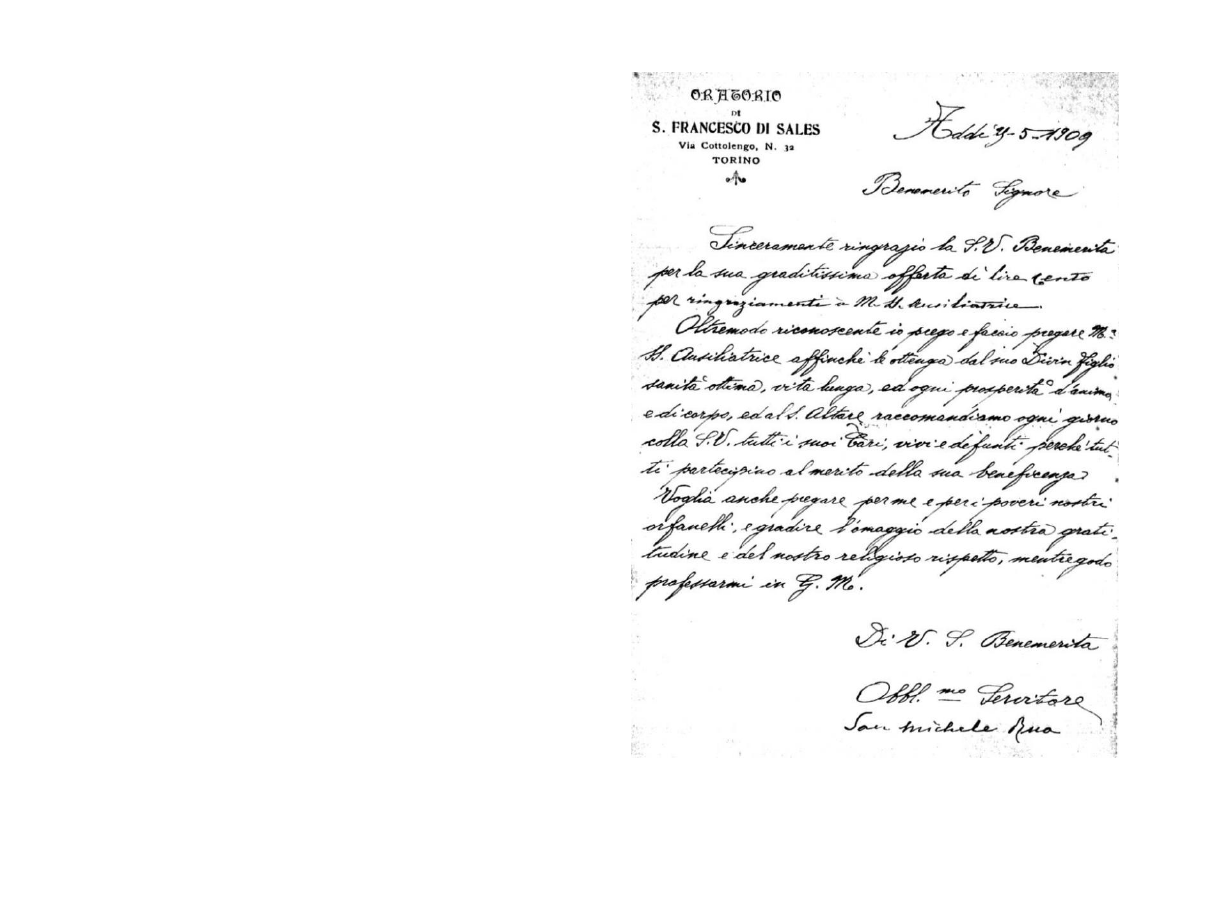 ORATORIO
DI
S. FRANCESCO DI SALES
Via Cottolengo, N. 32
TORINO
Addì 4-5-1909
Benemerito Signore
Sinceramente ringrazio la S.V. Benemerita
per la sua graditissima offerta di lire Cento
per ringraziamenti a M. SS. Ausiliatrice.
Oltremodo riconoscente io prego e faccio pregare M.
SS. Ausiliatrice affinchè le ottenga dal suo Divin Figlio
sanità ottima, vita lunga, ed ogni prosperità d'anima
e di corpo, ed al S. Altare raccomandiamo ogni giorno
colla S.V. tutti i suoi Cari, vivi e defunti perchè tut-
ti partecipino al merito della sua beneficenza
Voglia anche pregare per me e per i poveri nostri
orfanelli, e gradire l'omaggio della nostra grati-
tudine e del nostro religioso rispetto, mentre godo
professarmi in G. M.
Di V. S. Benemerita
Obbl.mo Servitore
Sac Michele Rua